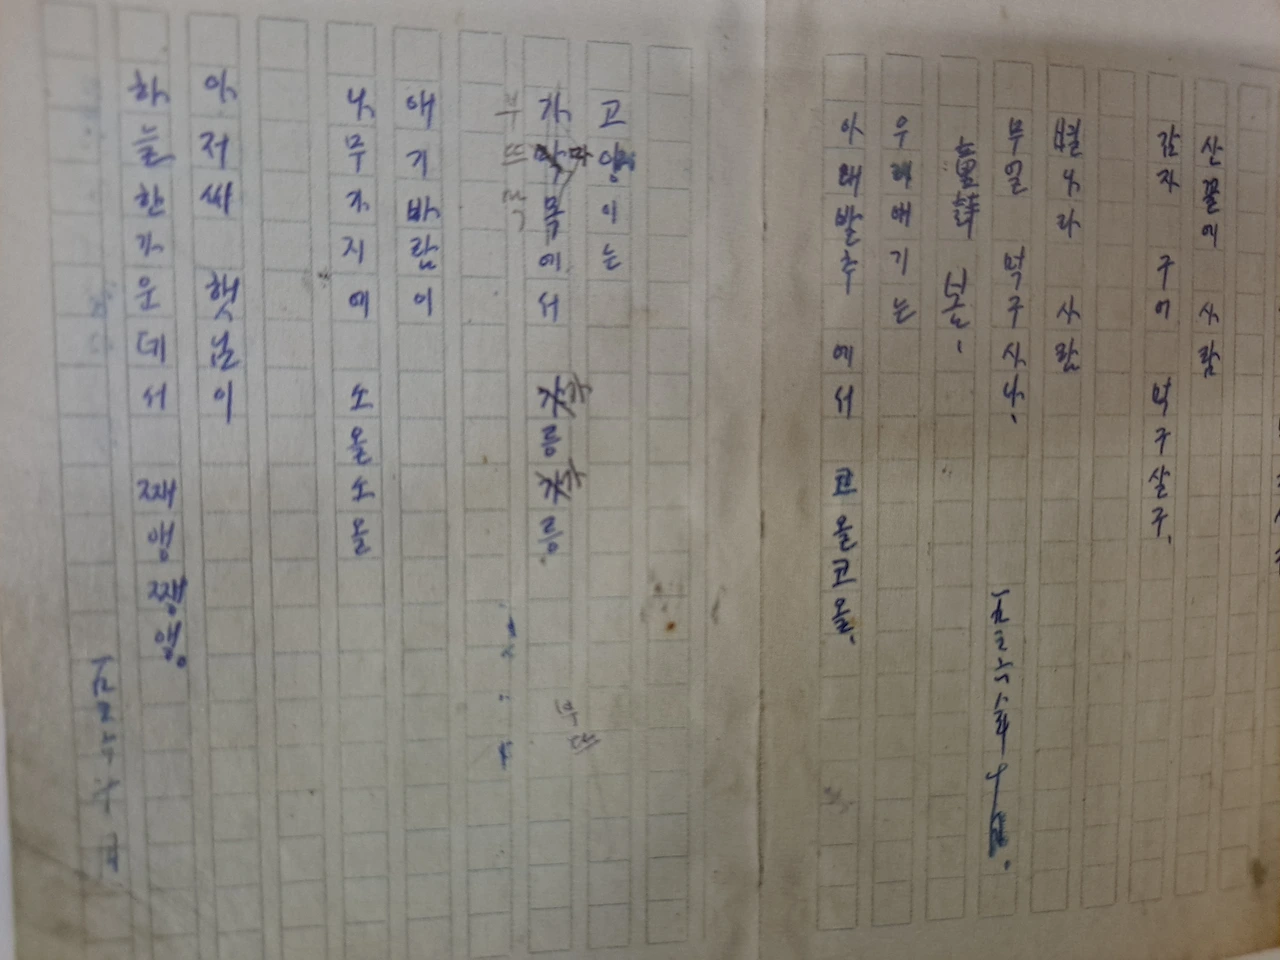 산꼴에 사람
감자 구어 먹구살구.
별나라 사람
무얼 먹구사나.
童詩 봄.
우리애기는
아래발추에서 코올코올.
고양이는
가마목에서 가릉가릉.
부뜨막
애기바람이
나무가지에 소올소올
아저씨 햇님이
하늘한가운데서 째앵쨍앵。